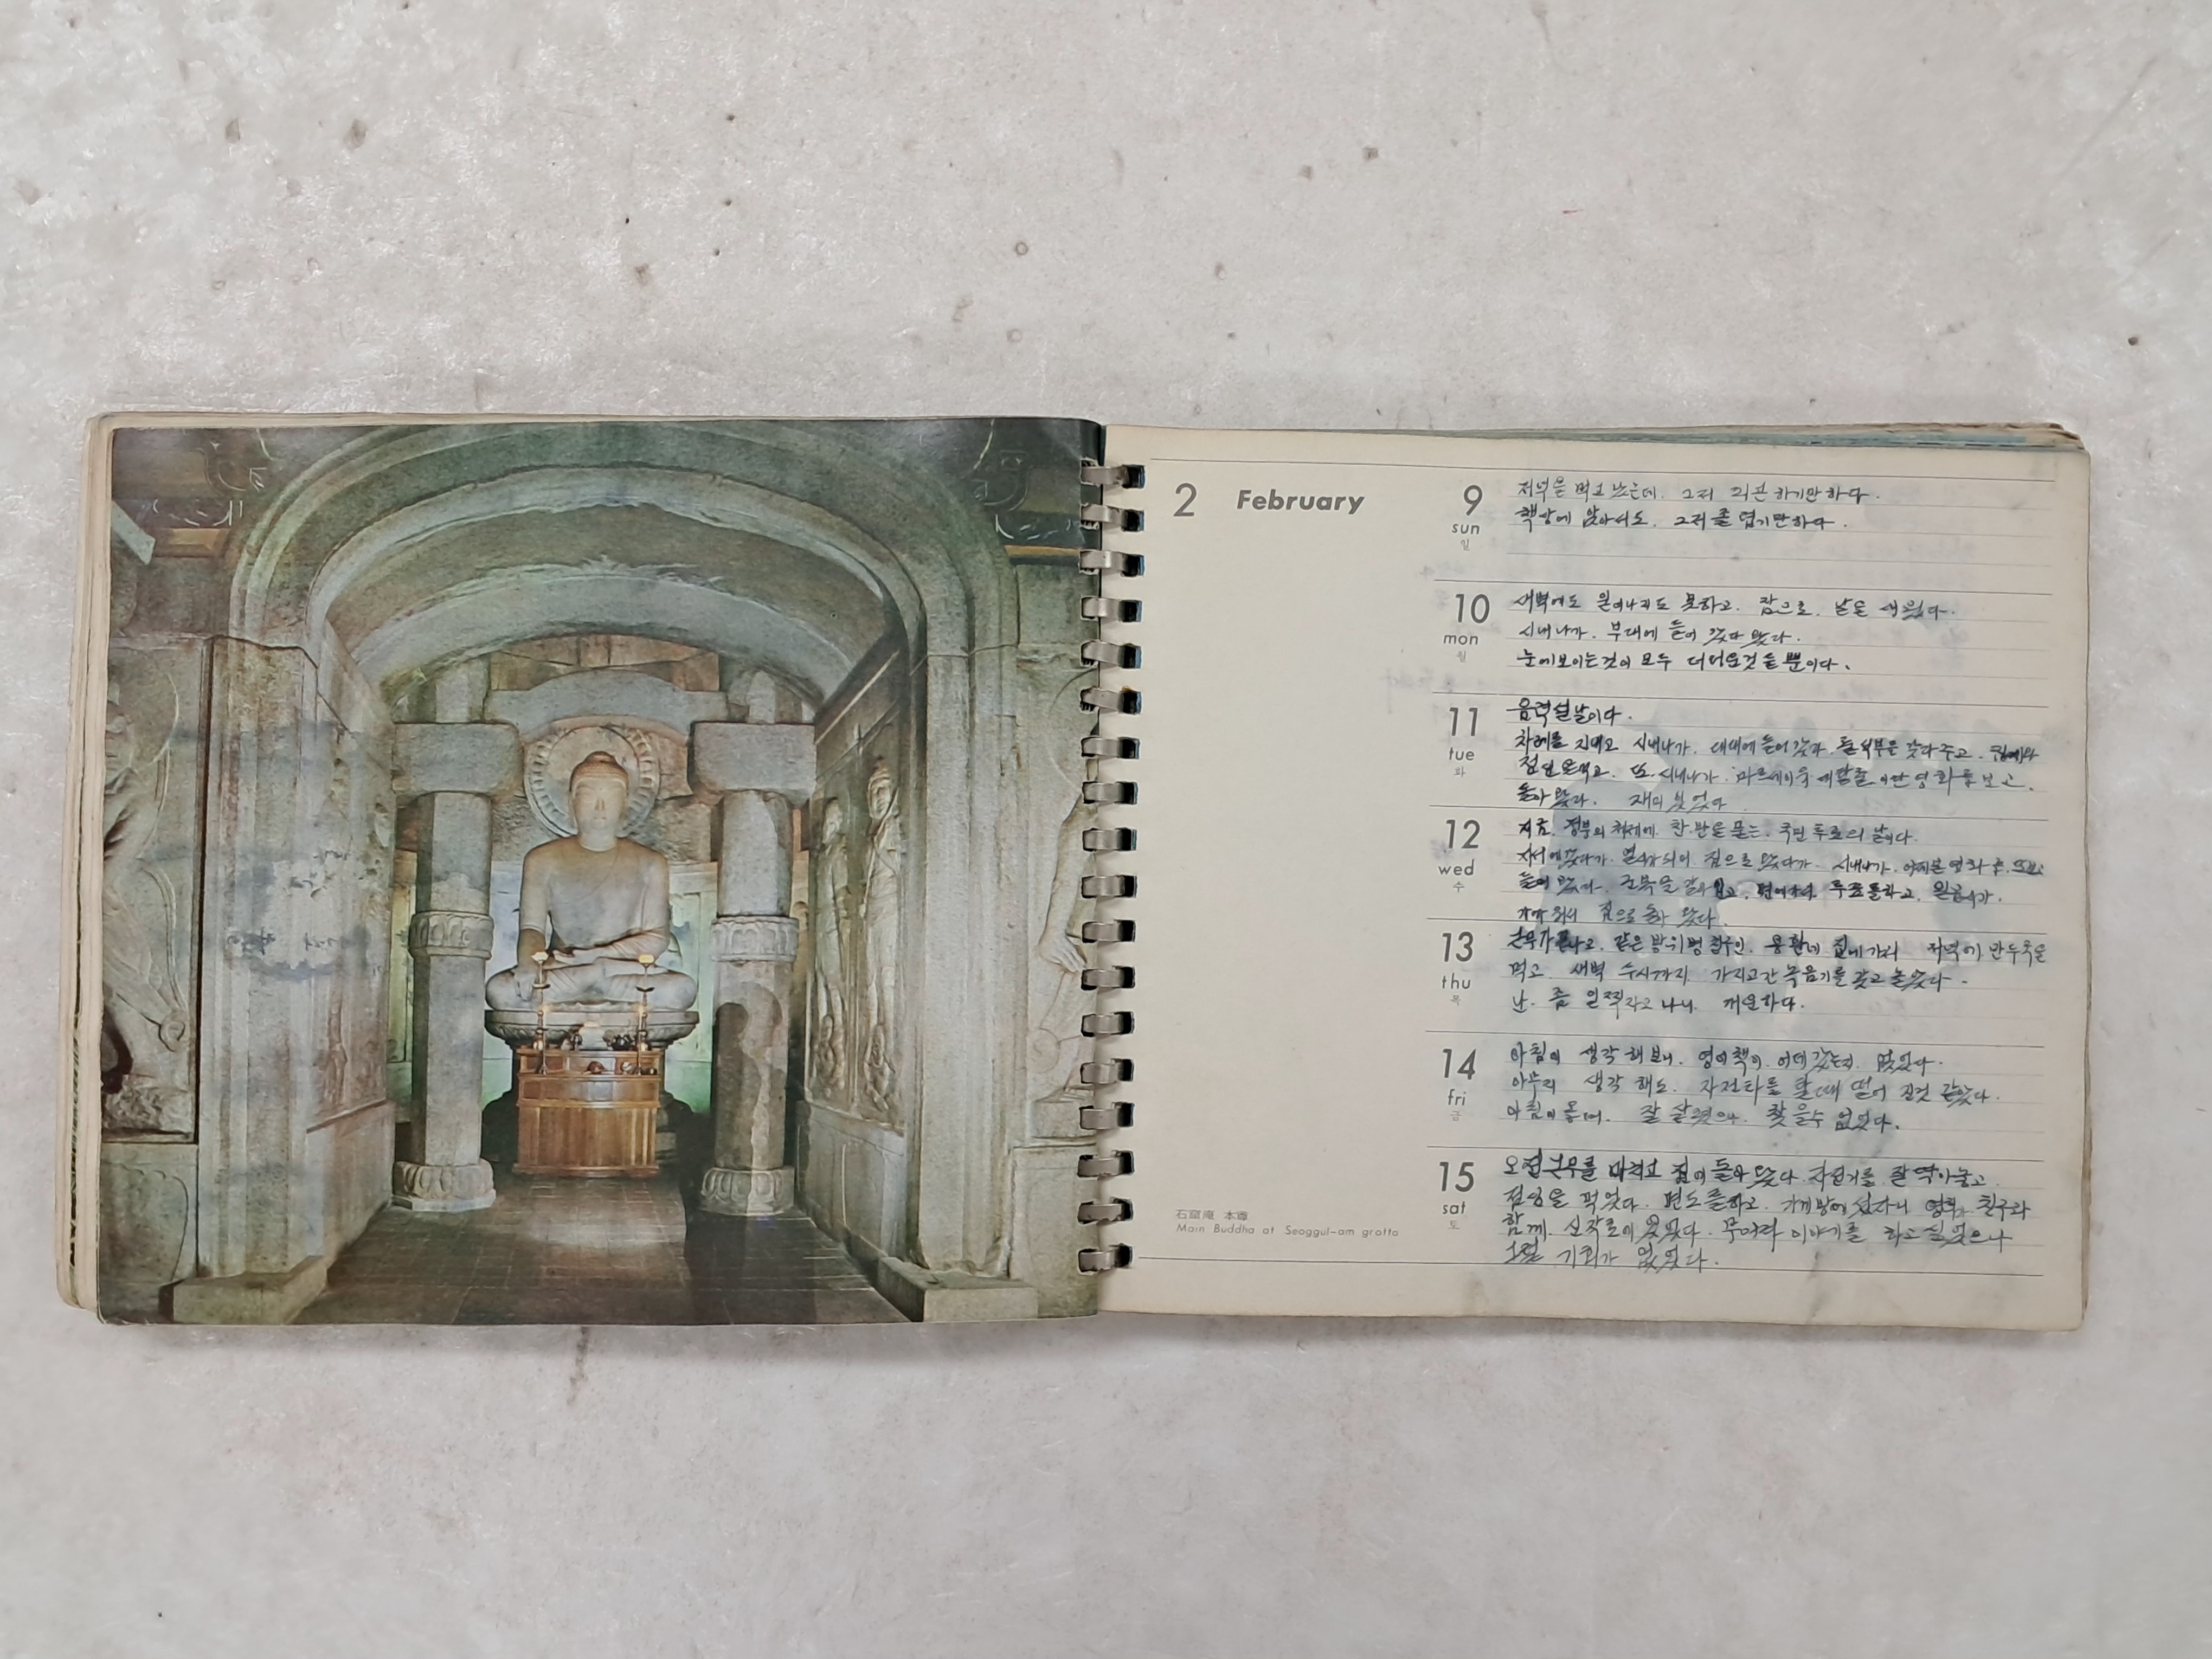 2 February
石窟庵 本尊
Main Buddha at Seoggul-am grotto
9
sun
일
저녁을 먹고 났는데. 그저 피곤하기만 하다.
책상에 앉아서도. 그저 졸렵기만하다.
10
mon
월
새벽에도 일어나지도 못하고. 잠으로. 날을 새웠다.
시내나가. 부대에 들어 갔다 왔다.
눈에보이는것이 모두 더러운것들 뿐이다.
11
tue
화
음력설날이다.
차례를 지내고 시내나가. 대대에 들어갔다. 주고.
점심을먹고. 또. 시내나가. 이란 영화를 보고.
돌아 왔다. 재미 있었다
12
wed
수
지금. 정부의 찬.반을 묻는. 국민 투표의 날이다.
집으로 왔다가. 시내나가. 어제본 영화
들어 왔다. 군복을 갈아 입고. 투표를하고.
집으로 돌아 왔다.
13
thu
목
근무가끝나고. 같은 방위병 집에가서 저녁에 만두국을
먹고 새벽 가지고간 녹음기를 갖고 놀았다.
난. 좀 일찍자고 나니 개운하다.
14
fri
금
아침에 생각 해보니. 영어책이. 어디 갔는지. 없었다.
아무리 생각 해도. 자전차를 탈때 떨어 진것 같았다.
아침에 올때. 잘 살폈으나. 찾을수 없었다.
15
sat
토
오전근무를 마치고 집에 돌아 왔다. 자전거를 잘 닦아놓고.
점심을 먹었다. 면도를하고. 가게방에 친구와
함께. 신작로에 있었다. 무어라 이야기를 하고 싶었으나
기회가 없었다.